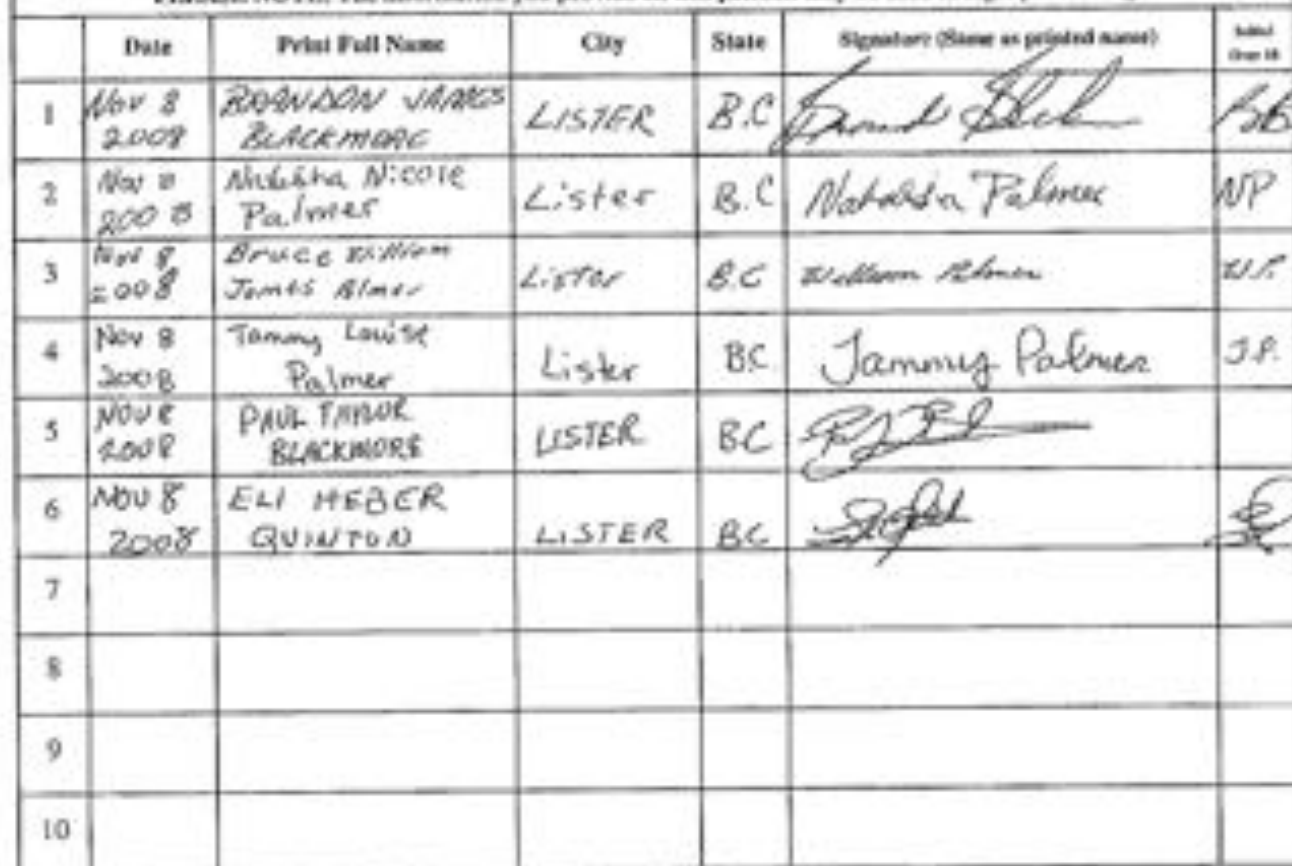 Date Print Full Name City State Signature (Same as printed name)
1 Nov 8 2008 BRANDON JAMES BLACKMORE LISTER B.C BB
2 Nov 8 2008 Nicole Palmer Lister B.C Palmer NP
3 Nov 8 2008 Bruce William James Lister B.C William
4 Nov 8 2008 Tammy Louise Palmer Lister BC Tammy Palmer
5 NOV 8 2008 PAUL TAYLOR BLACKMORE LISTER BC
6 NOV 8 2008 ELI HEBER QUINTON LISTER BC
7
8
9
10